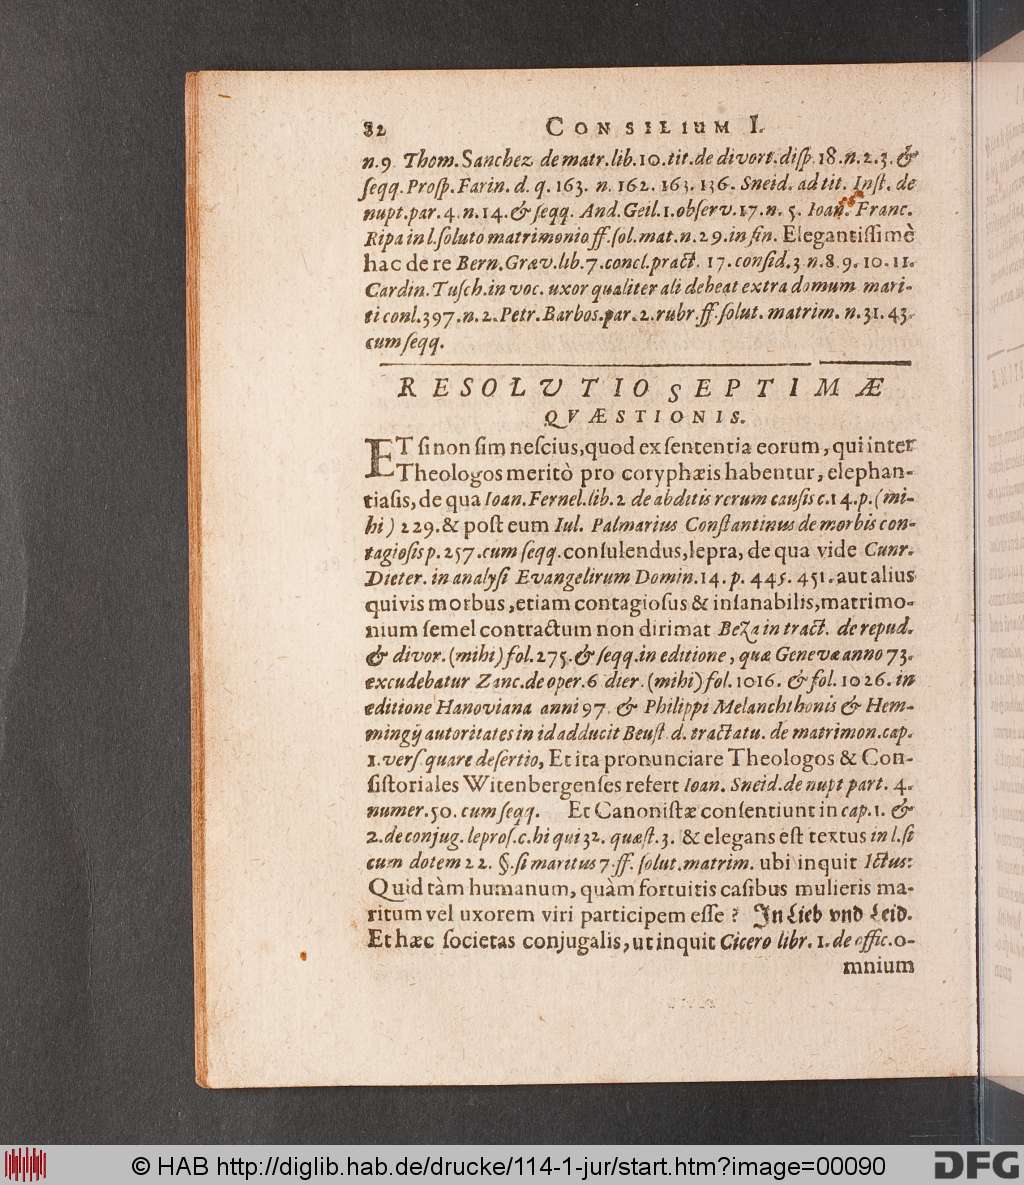 82 CONSILIUM I.
n.9. Thom. Sanchez de matr. lib. 10. tit. de divort. disp. 18. n. 2. 3. &
seqq. Prosp. Farin. d. q. 163. n. 162. 163. 136. Sneid. ad tit. Inst. de
nupt. par. 4. n. 14. & seqq. And. Geil. 1. observ. 17. n. 5. Ioan. Franc.
Ripa in l. soluto matrimonio ff. sol. mat. n. 29. in fin. Elegantissimè
hac de re Bern. Græv. lib. 7. concl. pract. 17. consid. 3 n. 8. 9. 10. 11.
Cardin. Tusch. in voc. uxor qualiter ali debeat extra domum mari-
ti conl. 397. n. 2. Petr. Barbos. par. 2. rubr. ff. solut. matrim. n. 31. 43.
cum seqq.
RESOLVTIO SEPTIMÆ
QVÆSTIONIS.
ET si non sim nescius, quod ex sententia eorum, qui inter
Theologos meritò pro coryphæis habentur, elephan-
tiasis, de qua Ioan. Fernel. lib. 2 de abditis rerum causis c. 14. p. (mi-
hi) 229. & post eum Iul. Palmarius Constantinus de morbis con-
tagiosis p. 257. cum seqq. consulendus, lepra, de qua vide Cunr.
Dieter. in analysi Evangelirum Domin. 14. p. 445. 451. aut alius
quivis morbus, etiam contagiosus & insanabilis, matrimo-
nium semel contractum non dirimat Beza in tract. de repud.
& divor. (mihi) fol. 275. & seqq. in editione, quæ Genevæ anno 73.
excudebatur Zanc. de oper. 6 dier. (mihi) fol. 1016. & fol. 1026. in
editione Hanoviana anni 97. & Philippi Melanchthonis & Hem-
mingij autoritates in id adducit Beust. d. tractatu. de matrimon. cap.
1. vers. quare desertio, Et ita pronunciare Theologos & Con-
sistoriales Witenbergenses refert Ioan. Sneid. de nupt part. 4.
numer. 50. cum seqq. Et Canonistæ consentiunt in cap. 1. &
2. de conjug. lepros. c. hi qui 32. quæst. 3. & elegans est textus in l. si
cum dotem 22. §. si maritus 7. ff. solut. matrim. ubi inquit Ictus:
Quid tàm humanum, quàm fortuitis casibus mulieris ma-
ritum vel uxorem viri participem esse? In Lieb vnd Leid.
Et hæc societas conjugalis, ut inquit Cicero libr. 1. de offic. o-
mnium
© HAB http://diglib.hab.de/drucke/114-1-jur/start.htm?image=00090
DFG